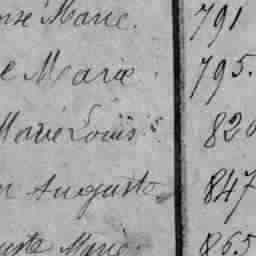 Marie. 791
e Marie. 795.
Marie Louis 820
Auguste 847
Marie 865